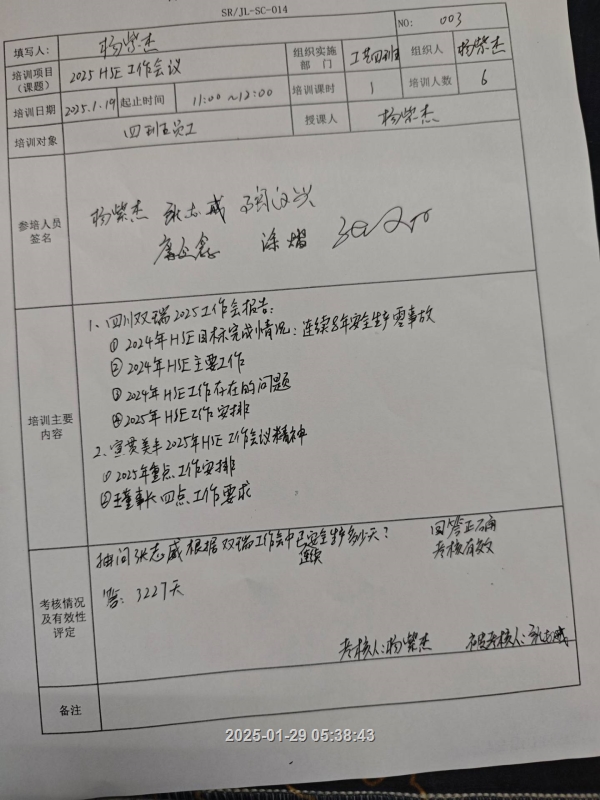 SR/JL-SC-014
NO: 003
填写人: 杨紫杰
培训项目(课题) 2025 HSE 工作会议 组织实施部门 工艺四班 组织人 杨紫杰
培训日期 2025.1.19 起止时间 11:00 ~12:00 培训课时 1 培训人数 6
培训对象 四班员工 授课人 杨紫杰
参培人员签名
杨紫杰 张志威
涂熠
培训主要内容
1、四川双瑞2025工作会报告:
① 2024年HSE目标完成情况: 连续8年安全生产零事故
② 2024年HSE主要工作
③ 2024年HSE工作存在的问题
④ 2025年HSE工作安排
2、宣贯美丰2025年HSE工作会议精神
① 2025年重点工作安排
② 王董事长四点工作要求
考核情况及有效性评定
抽问张志威根据双瑞工作会中已连续安全生产多少天? 回答正确
考核有效
答: 3227天
考核人: 杨紫杰 被考核人: 张志威
备注
2025-01-29 05:38:43